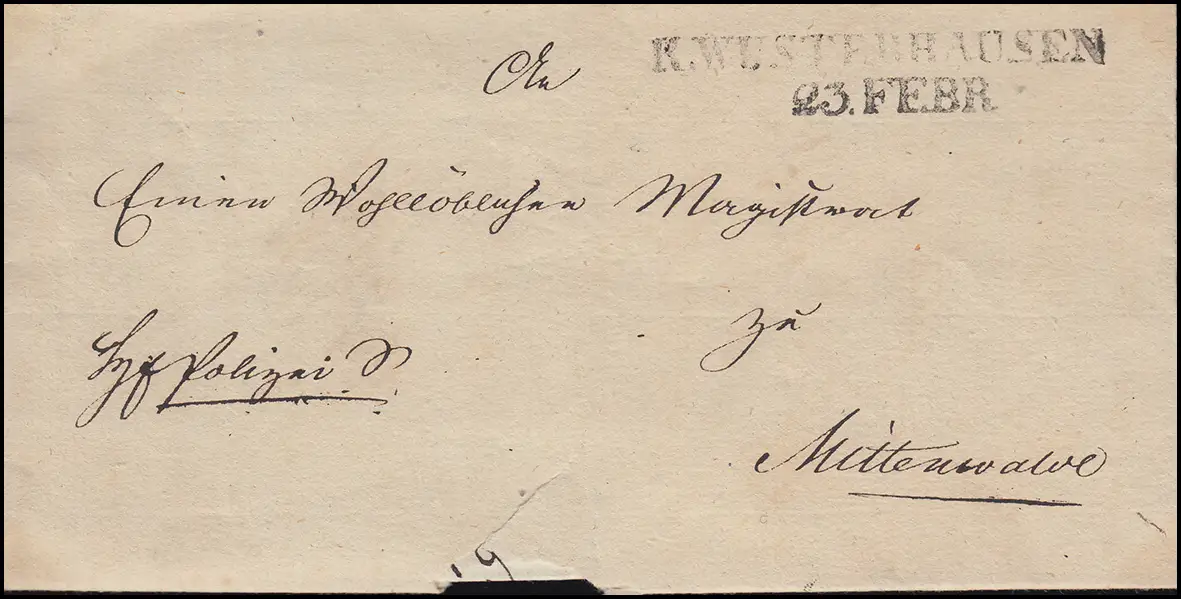 K. WUSTERHAUSEN
23. FEBR
An
Einen Wohllöblichen Magistrat
zu
Polizei S
Mittenwalde